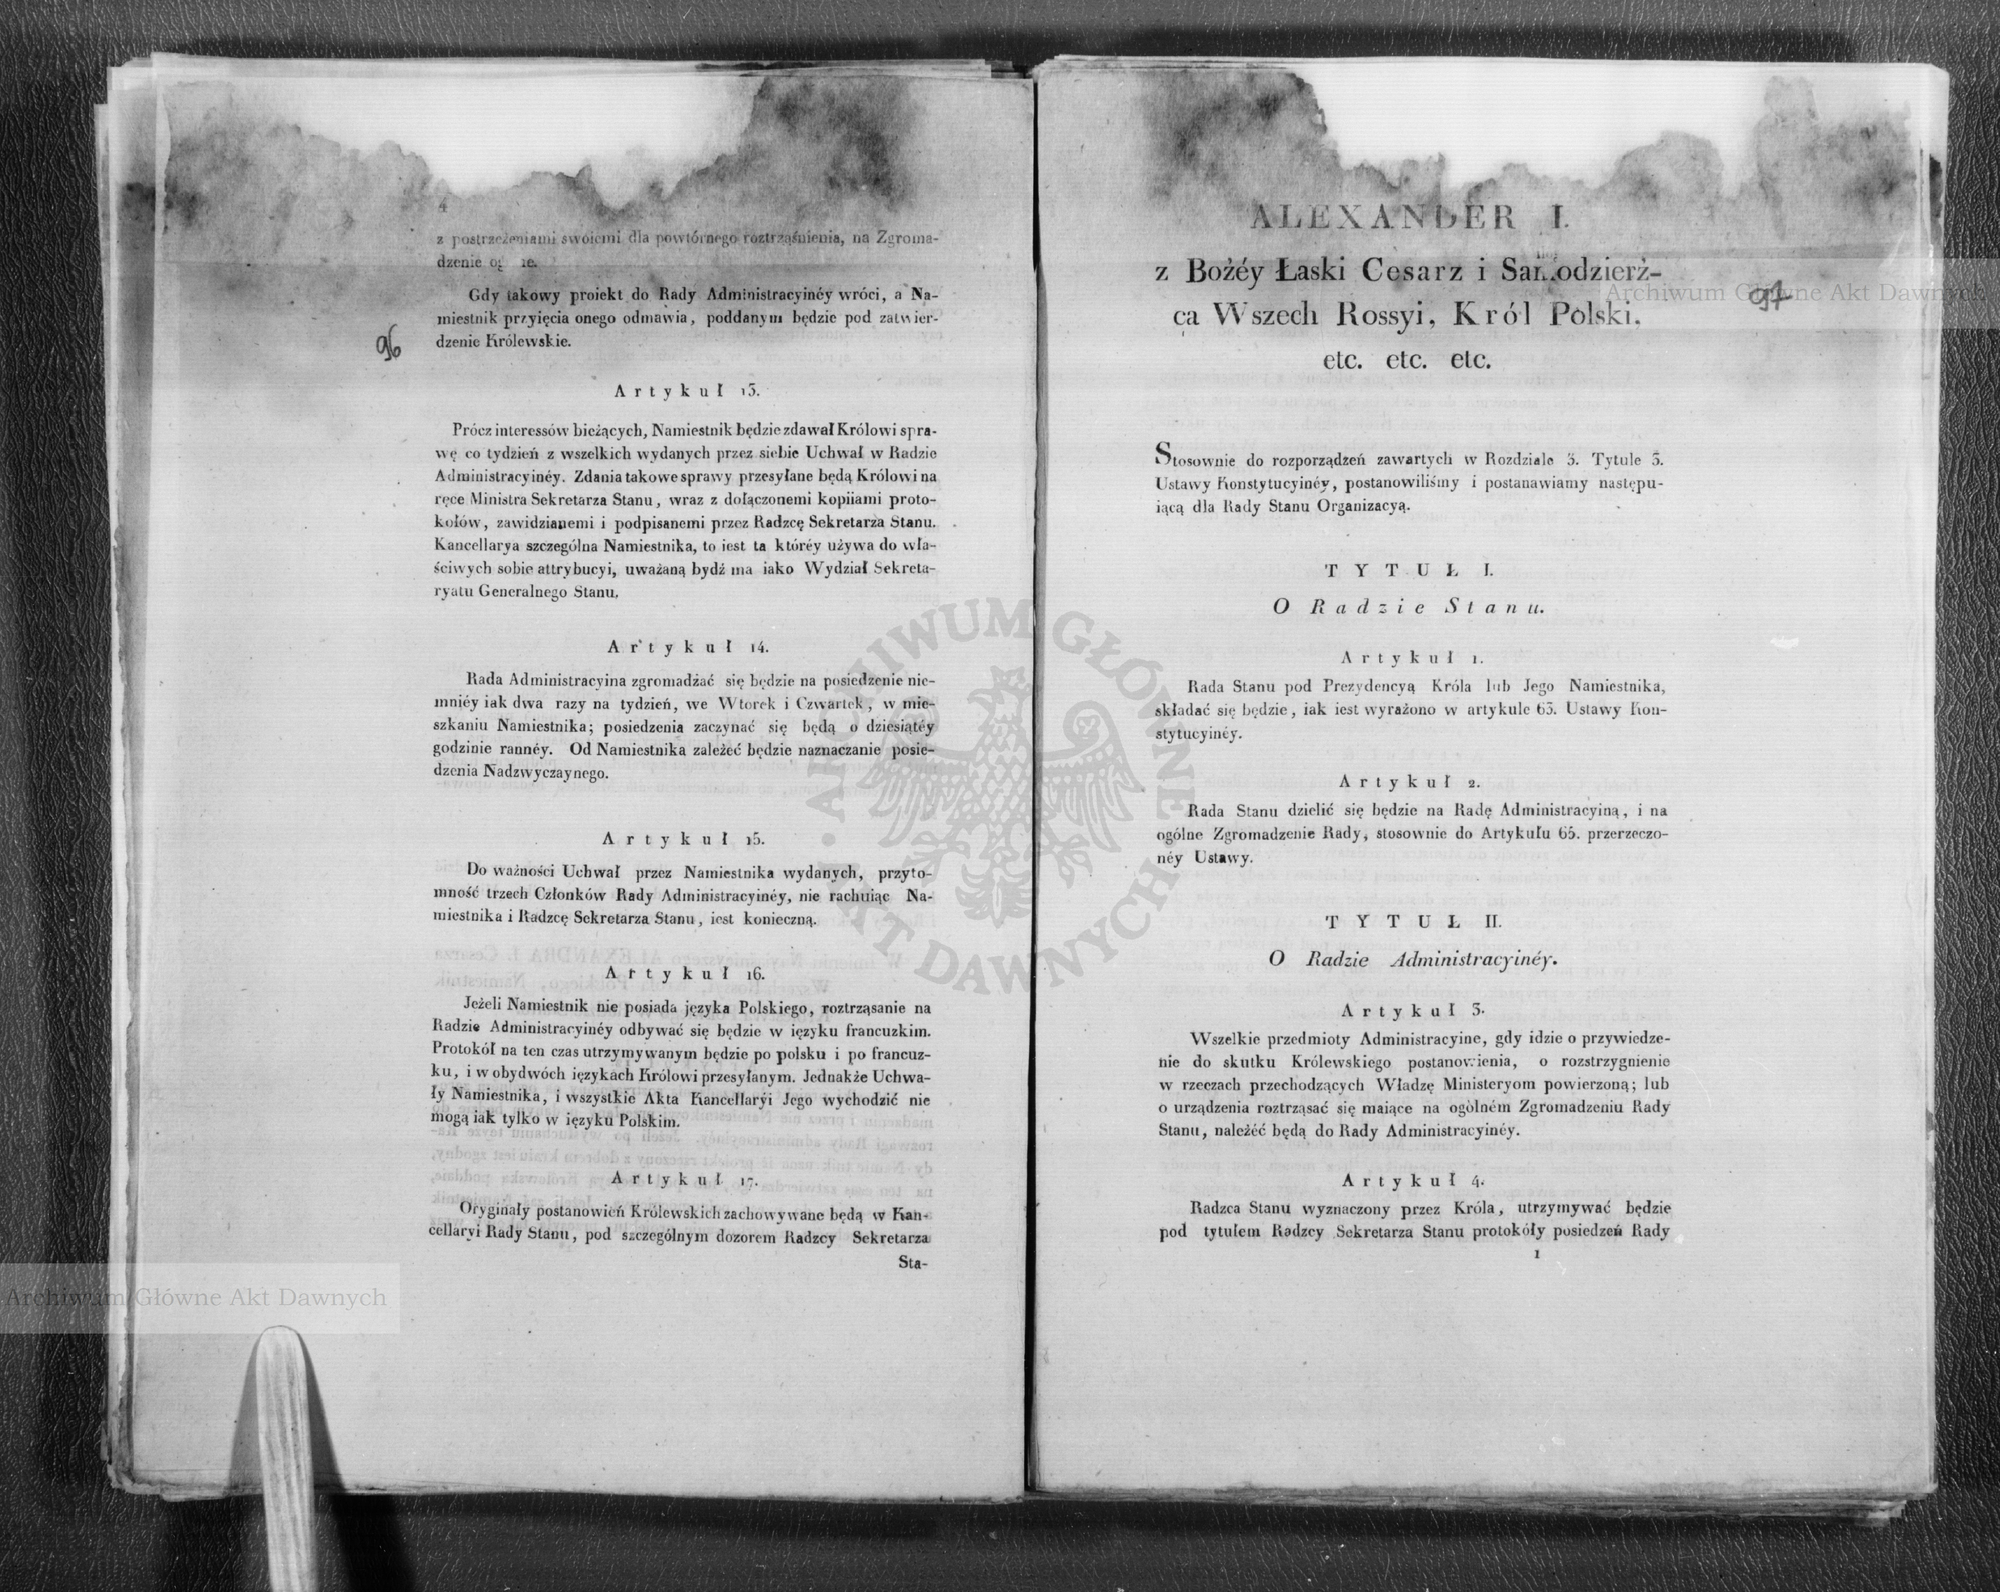 4
z postrzeżeniami swoiemi dla powtórnego roztrząśnienia, na Zgroma-
dzenie
Gdy takowy proiekt do Rady Administracyinéy wróci, a Na-
miestnik przyięcia onego odmawia, poddanym będzie pod zatwier-
dzenie Królewskie.
96
Artykuł 13.
Prócz interessów bieżących, Namiestnik będzie zdawał Królowi spra-
wę co tydzień z wszelkich wydanych przez siebie Uchwał w Radzie
Administracyinéy. Zdania takowe sprawy przesyłane będą Królowi na
ręce Ministra Sekretarza Stanu, wraz z dołączonemi kopiiami proto-
kołów, zawidzianemi i podpisanemi przez Radzcę Sekretarza Stanu.
Kancellarya szczególna Namiestnika, to iest ta któréy używa do wła-
ściwych sobie attrybucyi, uważaną bydź ma iako Wydział Sekreta-
ryatu Generalnego Stanu.
Artykuł 14.
Rada Administracyina zgromadżać się będzie na posiedzenie nie-
mniéy iak dwa razy na tydzień, we Wtorek i Czwartek, w mie-
szkaniu Namiestnika; posiedzenia zaczynać się będą o dziesiątéy
godzinie rannéy. Od Namiestnika zależeć będzie naznaczanie posie-
dzenia Nadzwyczaynego.
Artykuł 15.
Do ważności Uchwał przez Namiestnika wydanych, przyto-
mność trzech Członków Rady Administracyinéy, nie rachuiąc Na-
miestnika i Radzcę Sekretarza Stanu, iest konieczną.
Artykuł 16.
Jeżeli Namiestnik nie posiada języka Polskiego, roztrząsanie na
Radzie Administracyinéy odbywać się będzie w ięzyku francuzkim.
Protokół na ten czas utrzymywanym będzie po polsku i po francuz-
ku, i w obydwóch ięzykach Królowi przesyłanym. Jednakże Uchwa-
ły Namiestnika, i wszystkie Akta Kancellaryi Jego wychodzić nie
mogą iak tylko w ięzyku Polskim.
Artykuł 17.
Oryginały postanowień Królewskich zachowywane będą w Kan-
cellaryi Rady Stanu, pod szczególnym dozorem Radzcy Sekretarza
Sta-
Archiwum Główne Akt Dawnych
ARCHIWUM GŁÓWNE AKT DAWNYCH
ALEXANDER I.
z Bożéy Łaski Cesarz i Samodzierż-
ca Wszech Rossyi, Król Polski,
etc. etc. etc.
Archiwum Główne Akt Dawnych
97
Stosownie do rozporządzeń zawartych w Rozdziale 3. Tytule 3.
Ustawy Konstytucyinéy, postanowiliśmy i postanawiamy następu-
iącą dla Rady Stanu Organizacyą.
TYTUŁ I.
O Radzie Stanu.
Artykuł 1.
Rada Stanu pod Prezydencyą Króla lub Jego Namiestnika,
składać się będzie, iak iest wyrażono w artykule 63. Ustawy Kon-
stytucyinéy.
Artykuł 2.
Rada Stanu dzielić się będzie na Radę Administracyiną, i na
ogólne Zgromadzenie Rady, stosownie do Artykułu 65. przerzeczo-
néy Ustawy.
TYTUŁ II.
O Radzie Administracyinéy.
Artykuł 3.
Wszelkie przedmioty Administracyine, gdy idzie o przywiedze-
nie do skutku Królewskiego postanowienia, o rozstrzygnienie
w rzeczach przechodzących Władzę Ministeryom powierzoną; lub
o urządzenia roztrząsać się maiące na ogólném Zgromadzeniu Rady
Stanu, należéć będą do Rady Administracyinéy.
Artykuł 4.
Radzca Stanu wyznaczony przez Króla, utrzymywać będzie
pod tytułem Radzcy Sekretarza Stanu protokóły posiedzeń Rady
1